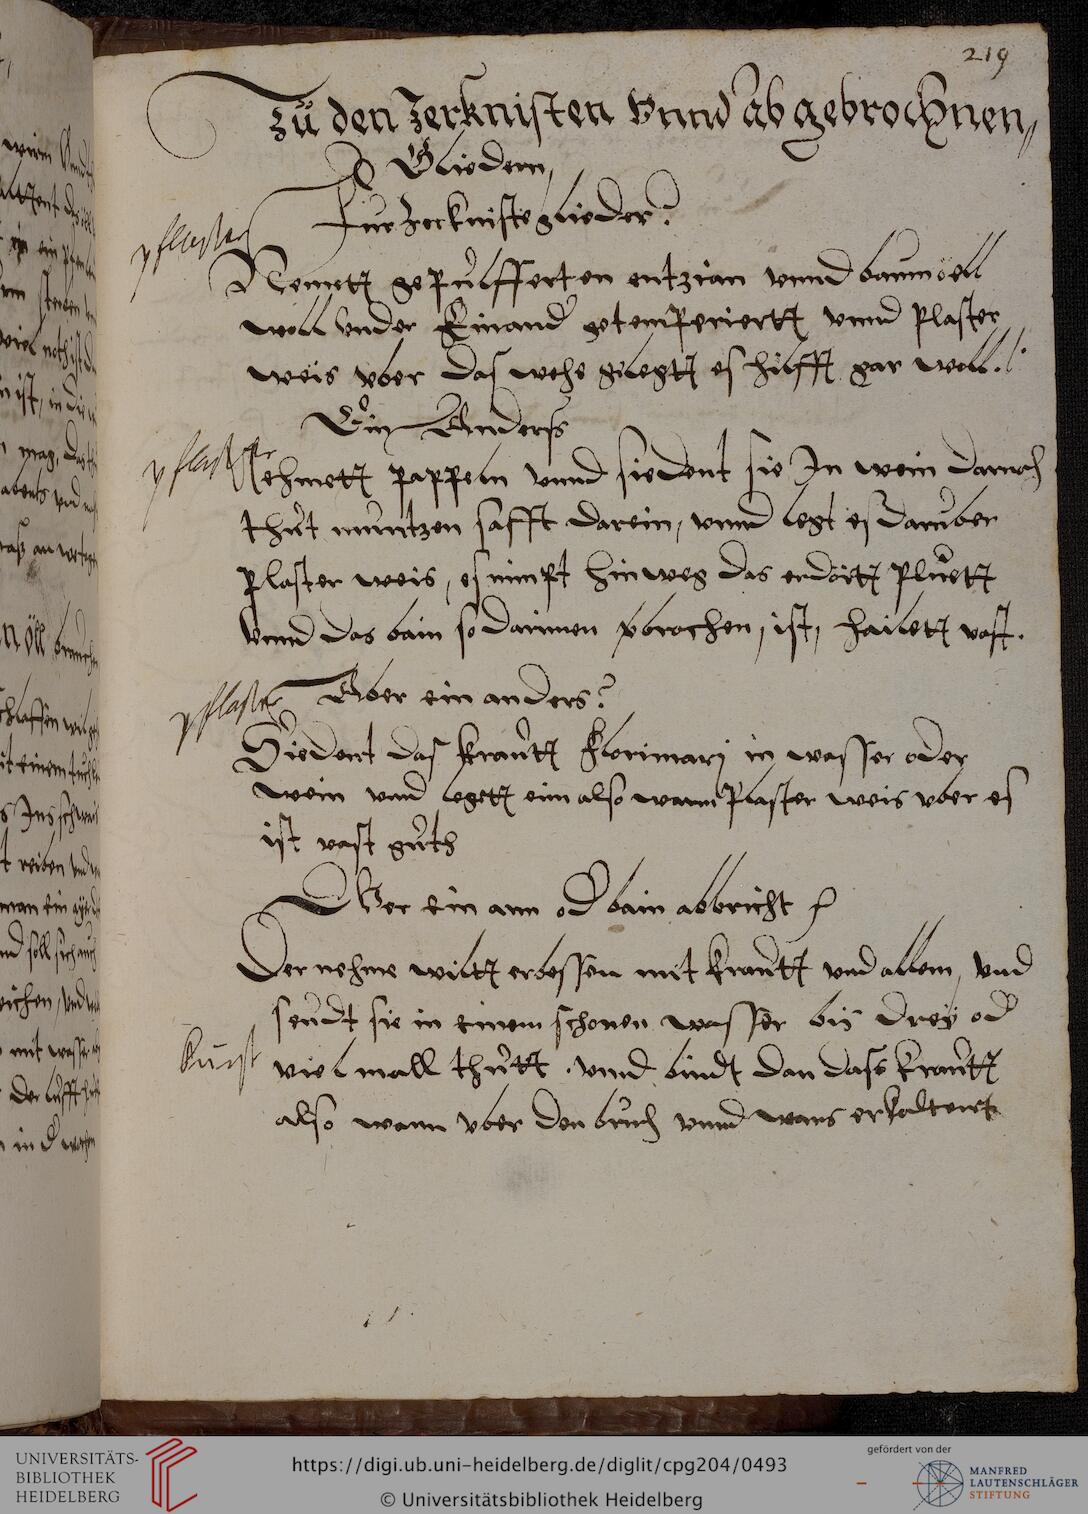 219
Zů den Zerknisten Vnnd Abgebrochnen,
Gliedern,
Fur Zerkniste glieder?
pflaster
Nemett gepulffertten entzian vnnd baumöell
woll vnder Einand getemperiertt vnnd plaster
weis vber das wehe gelegtt es hilfft gar woll.
Ein Anderss
pflaster
Nehmett pappeln vnnd siedent sie In wein darnach
thůt můntzen safft darein, vnnd legt es darůber
plaster weis, es nimpt hinweg das erdött plůett
Vnnd das bain so darinnen prochen, ist, hailett vast.
pflaster
Aber ein anders?
Siedent das krautt Florimarj in wasser oder
wein vnnd legett eim also warm Plaster weis vber es
ist vast gůth
Wer ein arm od bain abbricht
Der nehme wiltt erbessen mit krautt vnd allem, vnd
seudt sie in einem schonen wasser bis dreÿ od
kunst
viel mall thůtt. vnnd bindt dan dass krautt
also warm vber den bruch vnnd wans erkaltent
wirm
nist, in die
öll
brauchen
schlaffen will
mit einem tuchle
reiben
man ein
soll sich auch
mit wasser
Der lufft
UNIVERSITÄTS-
BIBLIOTHEK
HEIDELBERG
https://digi.ub.uni-heidelberg.de/diglit/cpg204/0493
© Universitätsbibliothek Heidelberg
gefördert von der
MANFRED
LAUTENSCHLÄGER
STIFTUNG